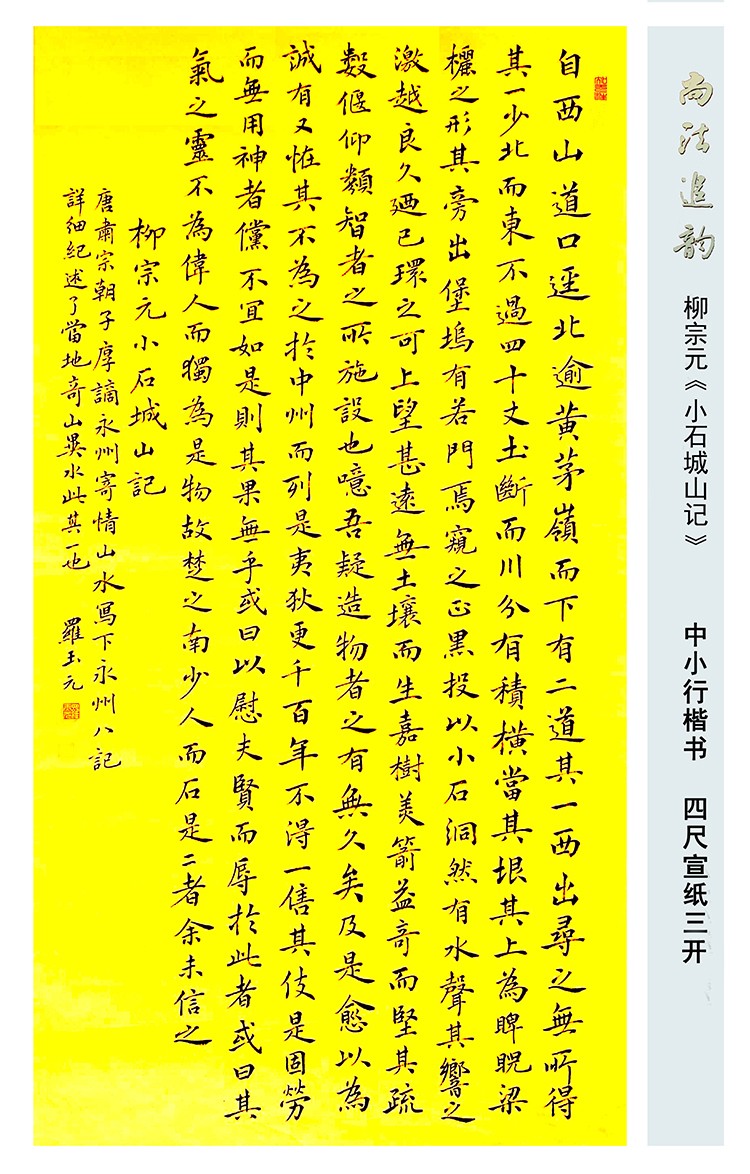 尚法追韵
柳宗元《小石城山记》
中小行楷书 四尺宣纸三开
自西山道口逕北逾黄茅嶺而下有二道其一西出尋之無所得
其一少北而東不過四十丈土斷而川分有積橫當其垠其上為睥睨梁
欐之形其旁出堡塢有若門焉窺之正黑投以小石洞然有水聲其響之
激越良久廼已環之可上望甚遠無土壤而生嘉樹美箭益竒而堅其疏
數偃仰類智者之所施設也噫吾疑造物者之有無久矣及是愈以為
誠有又恠其不為之於中州而列是夷狄更千百年不得一售其伎是固勞
而無用神者儻不宜如是則其果無乎或曰以慰夫賢而辱於此者或曰其
氣之靈不為偉人而獨為是物故楚之南少人而石是二者余未信之
柳宗元小石城山記
唐肅宗朝子厚謫永州寄情山水寫下永州八記
詳細紀述了當地竒山異水此其一也 羅玉元